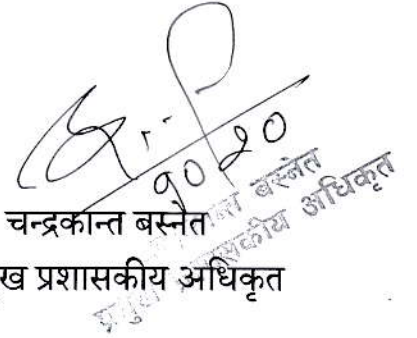 १०।२०
चन्द्रकान्त बस्नेत
ख प्रशासकीय अधिकृत
बस्नेत
प्रमुख प्रशासकीय अधिकृत